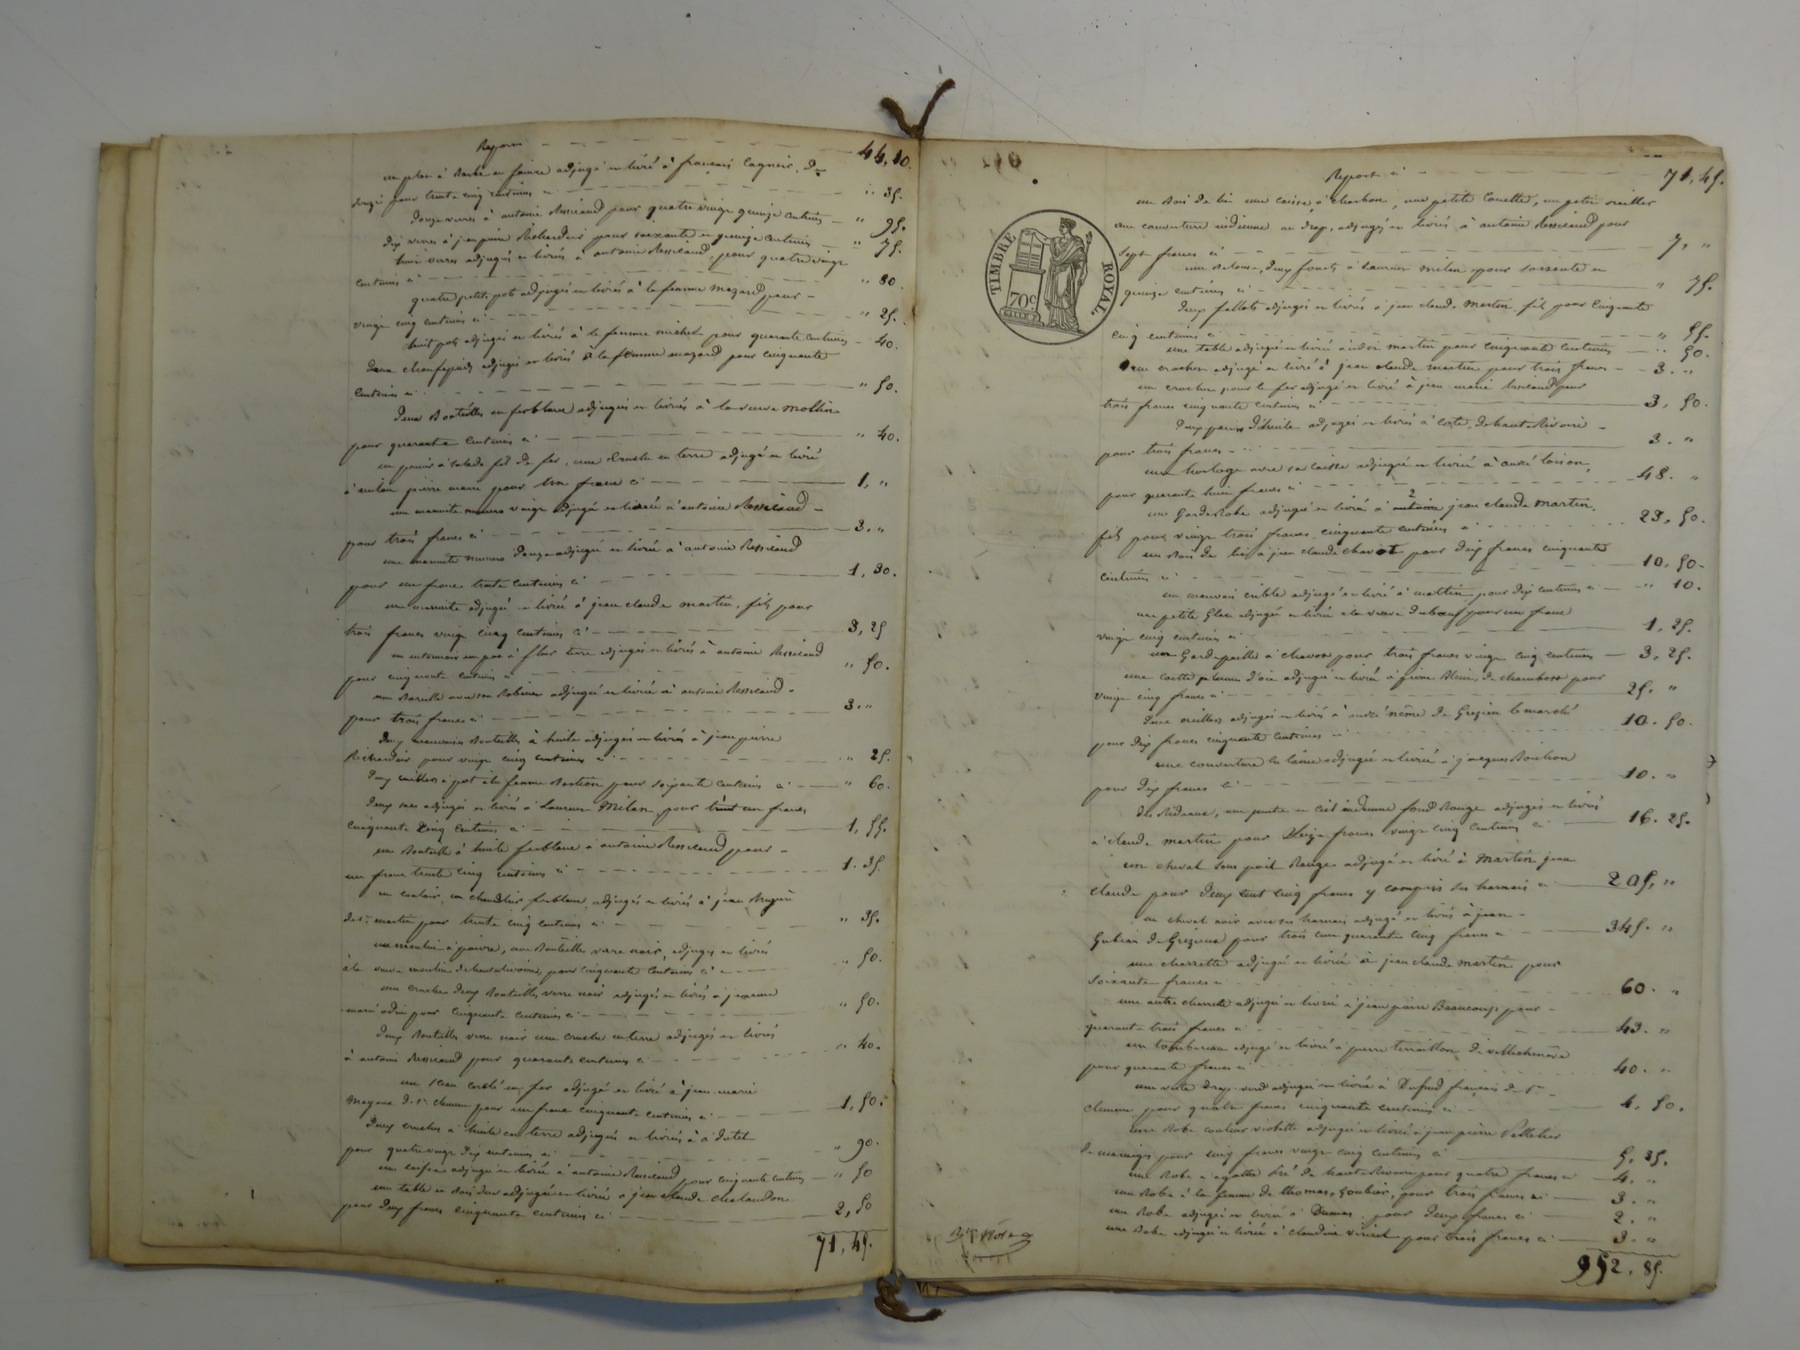 Report 44,10.
un plat à barbe en faience adjugé et livré à françois
pour trente cinq centimes " 35.
Douze verres à antoine Ressicaud pour quatre vingt quinze centimes " 95.
Dix verres à jean pierre Richardier pour soixante et quinze centimes " 75.
huit verres adjugés et livrés à antoine Ressicaud, pour quatre vingt
centimes ci " 80.
quatre petits pots adjugés et livrés à la femme mazard pour
vingt cinq centimes ci " 25.
huit pots adjugés et livrés à la femme michel pour quarante centimes 40.
Deux adjugés et livrés à la femme mazard pour cinquante
centimes ci " 50.
Deux Bouteilles en ferblanc adjugées et livrées à la veuve Mollin
pour quarante centimes ci " 40.
un panier à salade fil de fer, une Cruche en terre adjugé et livré
à milan pierre marie pour un franc ci 1, "
une marmite numero vingt adjugée et livrée à antoine Ressicaud
pour trois francs ci 3. "
une marmite numero Douze adjugée et livrée à antoine Ressicaud
pour un franc trente centimes ci 1, 30.
une marmite adjugée et livrée à jean claude martin, fils pour
trois francs vingt cinq centimes ci 3, 25
un adjugés et livrés à antoine Ressicaud
pour cinquante centimes ci " 50.
une Barrille avec son Robinet adjugée et livrée à antoine Ressicaud
pour trois francs ci 3. "
Deux mauvaises Bouteilles à huile adjugées et livrées à jean pierre
Richardier pour vingt cinq centimes ci " 25.
Deux à pot à la femme Bastion pour soixante centimes ci " 60.
Deux sacs adjugés et livrés à Laurent Milan pour un franc
cinquante cinq centimes ci 1, 55.
une Bouteille à huile ferblanc à antoine Ressicaud pour
un franc trente cinq centimes ci 1. 35.
un un chandelier ferblanc, adjugés et livrés à jean
de st martin pour trente cinq centimes ci " 35.
un moulin à poivre, une Bouteille verre noir, adjugés et livrés
à la veuve moulin de hauterivoire, pour cinquante centimes ci " 50.
une cruche Deux Bouteilles verre noir adjugés et livrés à jeanne
marie odin pour cinquante centimes ci " 50.
Deux Bouteilles verre noir une cruche en terre adjugés et livrés
à antoine Ressicaud pour quarante centimes ci " 40.
un seau cerclé en fer adjugé et livré à jean marie
de st clement pour un franc cinquante centimes ci 1, 50.
Deux cruches à huile en terre adjugées et livrées à
pour quatre vingt dix centimes ci " 90.
un adjugé et livré à antoine Ressicaud pour cinquante centimes " 50
une table en bois dur adjugée et livrée à jean claude chalandon
pour deux francs cinquante centimes ci 2, 50
71, 45.
TIMBRE ROYAL.
70c
Report ci 71, 45.
un Bois de lit une caisse à charbon, une petite Couette, un petit oreiller
une couverture indienne un drap, adjugés et livrés à antoine Ressicaud pour
sept francs ci 7, "
une Balance, deux à Laurent Milan pour soixante et
quinze centimes ci " 75.
Deux fallots adjugés et livrés à jean claude Martin fils pour cinquante
cinq centimes ci " 55.
une table adjugée et livrée à martin pour cinquante centimes " 50.
un crochet adjugé et livré à jean claude martin pour trois francs 3. "
un crochet pour le fer adjugé et livré à jean marie pour
trois francs cinquante centimes ci 3, 50.
Deux d'huile adjugés et livrés à de hauterivoire
pour trois francs 3. "
une horloge avec sa caisse adjugée et livrée à andré loison,
pour quarante huit francs ci 48. "
un GardeRobe adjugé et livré à jean claude Martin
fils pour vingt trois francs, cinquante centimes ci 23, 50.
un Bois de lit à jean claude chavot pour dix francs cinquante
centimes ci 10, 50.
un mauvais crible adjugé et livré à mollin pour dix centimes ci " 10.
une petite Glace adjugée et livrée à la veuve Duboeuf pour un franc
vingt cinq centimes ci 1, 25.
une Gardepaille à pour trois francs vingt cinq centimes 3, 25.
une Couette plumes d'oie adjugée et livrée à de chambost pour
vingt cinq francs ci 25. "
Deux oreillers adjugés et livrés à andré même de Grezieu le marché
pour dix francs cinquante centimes 10. 50.
une couverture en laine adjugée et livrée à jacques Bouchon
pour dix francs ci 10. "
Des Rideaux, une pente en ciel indienne fond Rouge adjugés et livrés
à claude martin pour Seize francs vingt cinq centimes ci 16. 25.
un cheval sous poil Rouge adjugé et livré à Martin jean
claude pour Deux cent cinq francs y compris ses harnais ci 205, "
un cheval noir avec ses harnais adjugé et livrés à jean
Gubian de Grezieux pour trois cent quarante cinq francs ci 345. "
une charrette adjugée et livrée à jean claude Martin pour
Soixante francs ci 60. "
une autre charrette adjugée et livrée à jean pierre Beaucoup, pour
quarante trois francs ci 43. "
un tombereau adjugé et livré à pierre terraillon de villechenève
pour quarante francs ci 40. "
une veste drap verd adjugée et livrée à françois de st
clement pour quatre francs cinquante centimes ci 4, 50.
une Robe couleur violette adjugée et livrée à jean pierre Pelletier
de pour cinq francs vingt cinq centimes ci 5, 25.
une Robe à agathe de hauterivoire pour quatre francs ci 4. "
une Robe à la femme de thomas, Goubier, pour trois francs ci 3. "
une Robe adjugée et livrée à Dumas, pour deux francs ci 2. "
une Robe adjugée et livrée à claudine pour trois francs ci 3. "
952. 85.